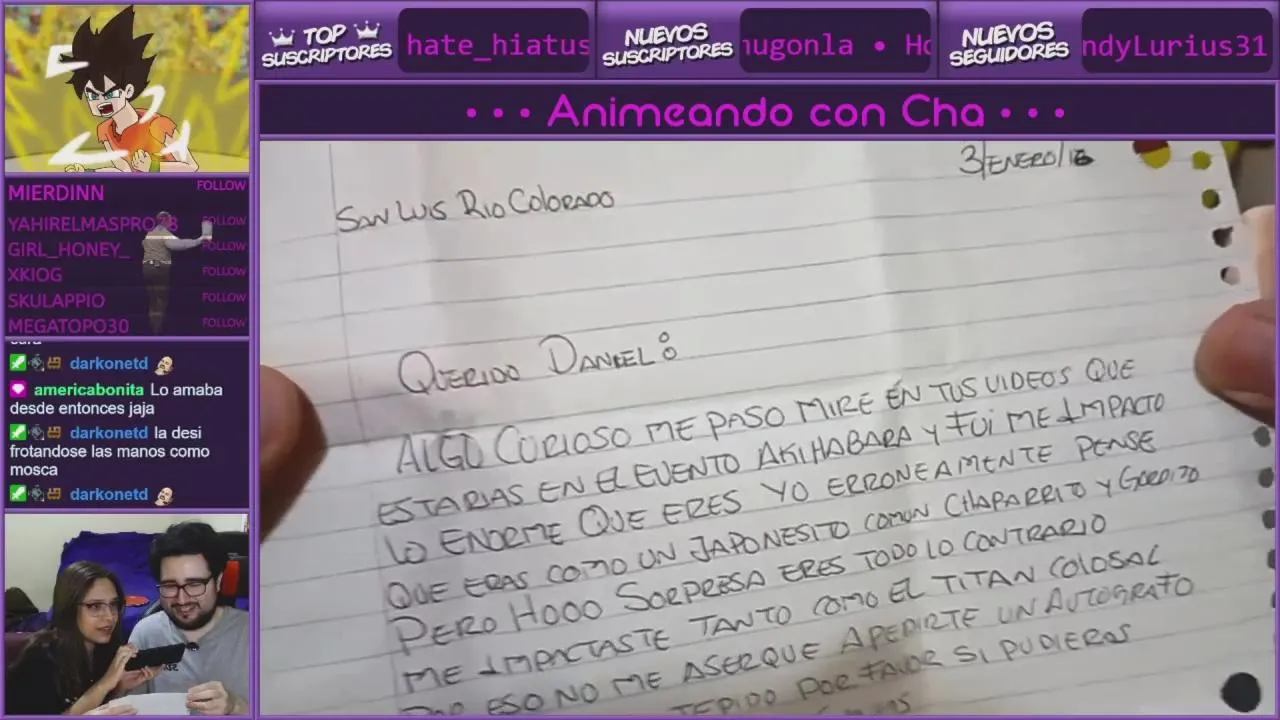 TOP SUSCRIPTORES
hate_hiatus
NUEVOS SUSCRIPTORES
nugonla • Ho
NUEVOS SEGUIDORES
ndyLurius31
• • • Animeando con Cha • • •
MIERDINN FOLLOW
YAHIRELMASPRO78 FOLLOW
GIRL_HONEY_ FOLLOW
XKIOG FOLLOW
SKULAPPIO FOLLOW
MEGATOPO30 FOLLOW
darkonetd
americabonita Lo amaba
desde entonces jaja
darkonetd la desi
frotandose las manos como
mosca
darkonetd
3/ENERO/16
SAN LUIS RIO COLORADO
QUERIDO DANIEL:
ALGO CURIOSO ME PASO MIRE EN TUS VIDEOS QUE
ESTARIAS EN EL EVENTO AKIHABARA Y FUI ME IMPACTO
LO ENORME QUE ERES YO ERRONEAMENTE PENSE
QUE ERAS COMO UN JAPONESITO COMUN CHAPARRITO Y GORDITO
PERO HOOO SORPRESA ERES TODO LO CONTRARIO
ME IMPACTASTE TANTO COMO EL TITAN COLOSAL
POR ESO NO ME ASERQUE APEDIRTE UN AUTOGRAFO
TEPIDO POR FAVOR SI PUDIERAS